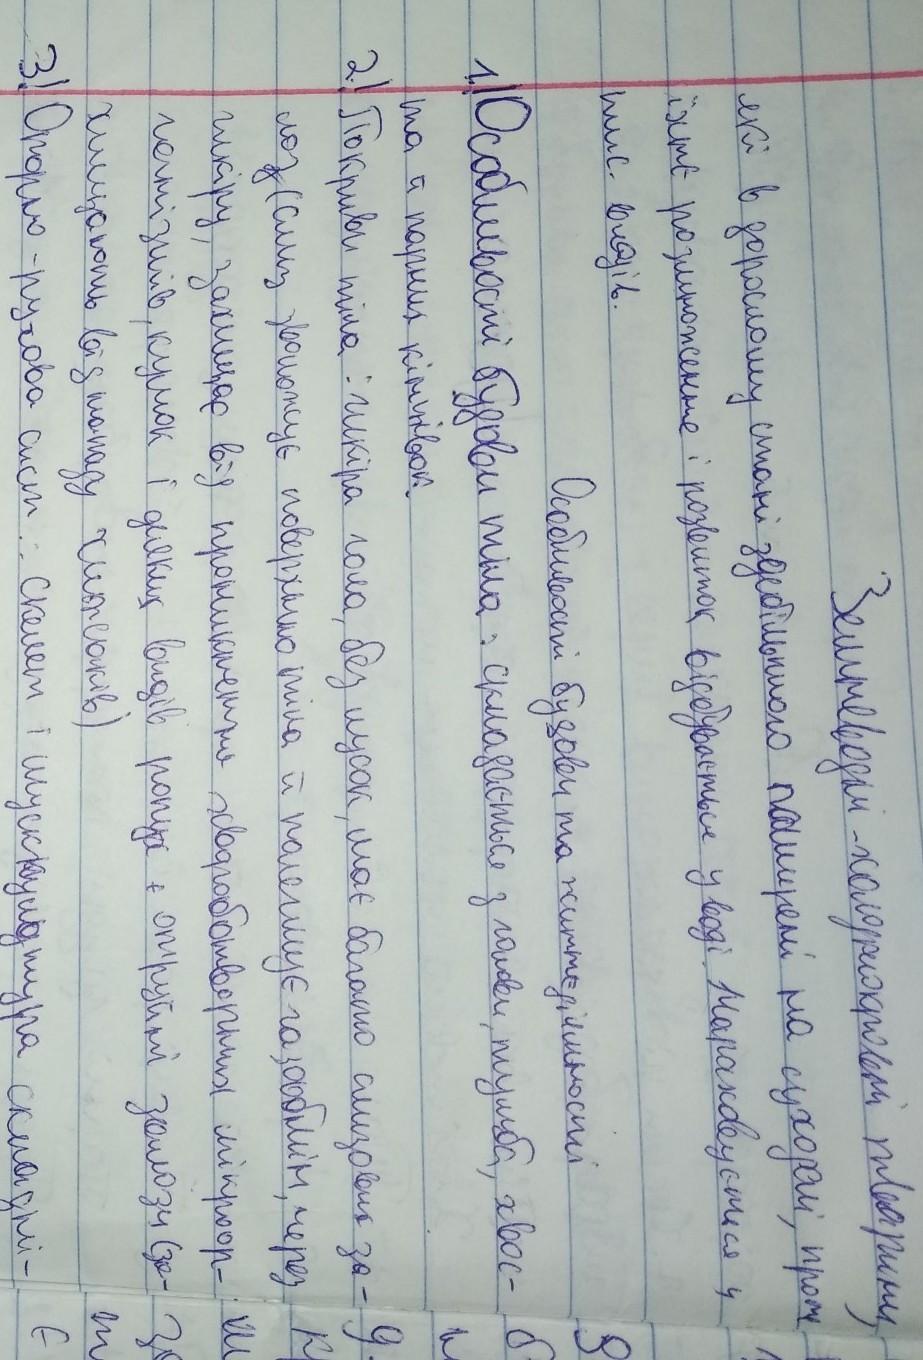 Земноводні - холоднокровні тварини,
які в дорослому стані здебільшого поширені на суходолі, проте
їхнє розмноження і розвиток відбувається у воді. Нараховується 4
тис. видів.
Особливості будови та життєдіяльності
1. Особливості будови тіла: складається з голови, тулуба, хвос-
та й парних кінцівок.
2. Покриви тіла: шкіра гола, без лусок, має багато слизових за-
лоз (слиз зволожує поверхню тіла й полегшує газообмін, через
шкіру, захищає від проникнення хвороботворних мікроор-
ганізмів, кумок і деяких видів ропух + отруйні залози (за-
хищають від нападу хижаків)
3. Опорно-рухова сист.: скелет і мускулатура складні-